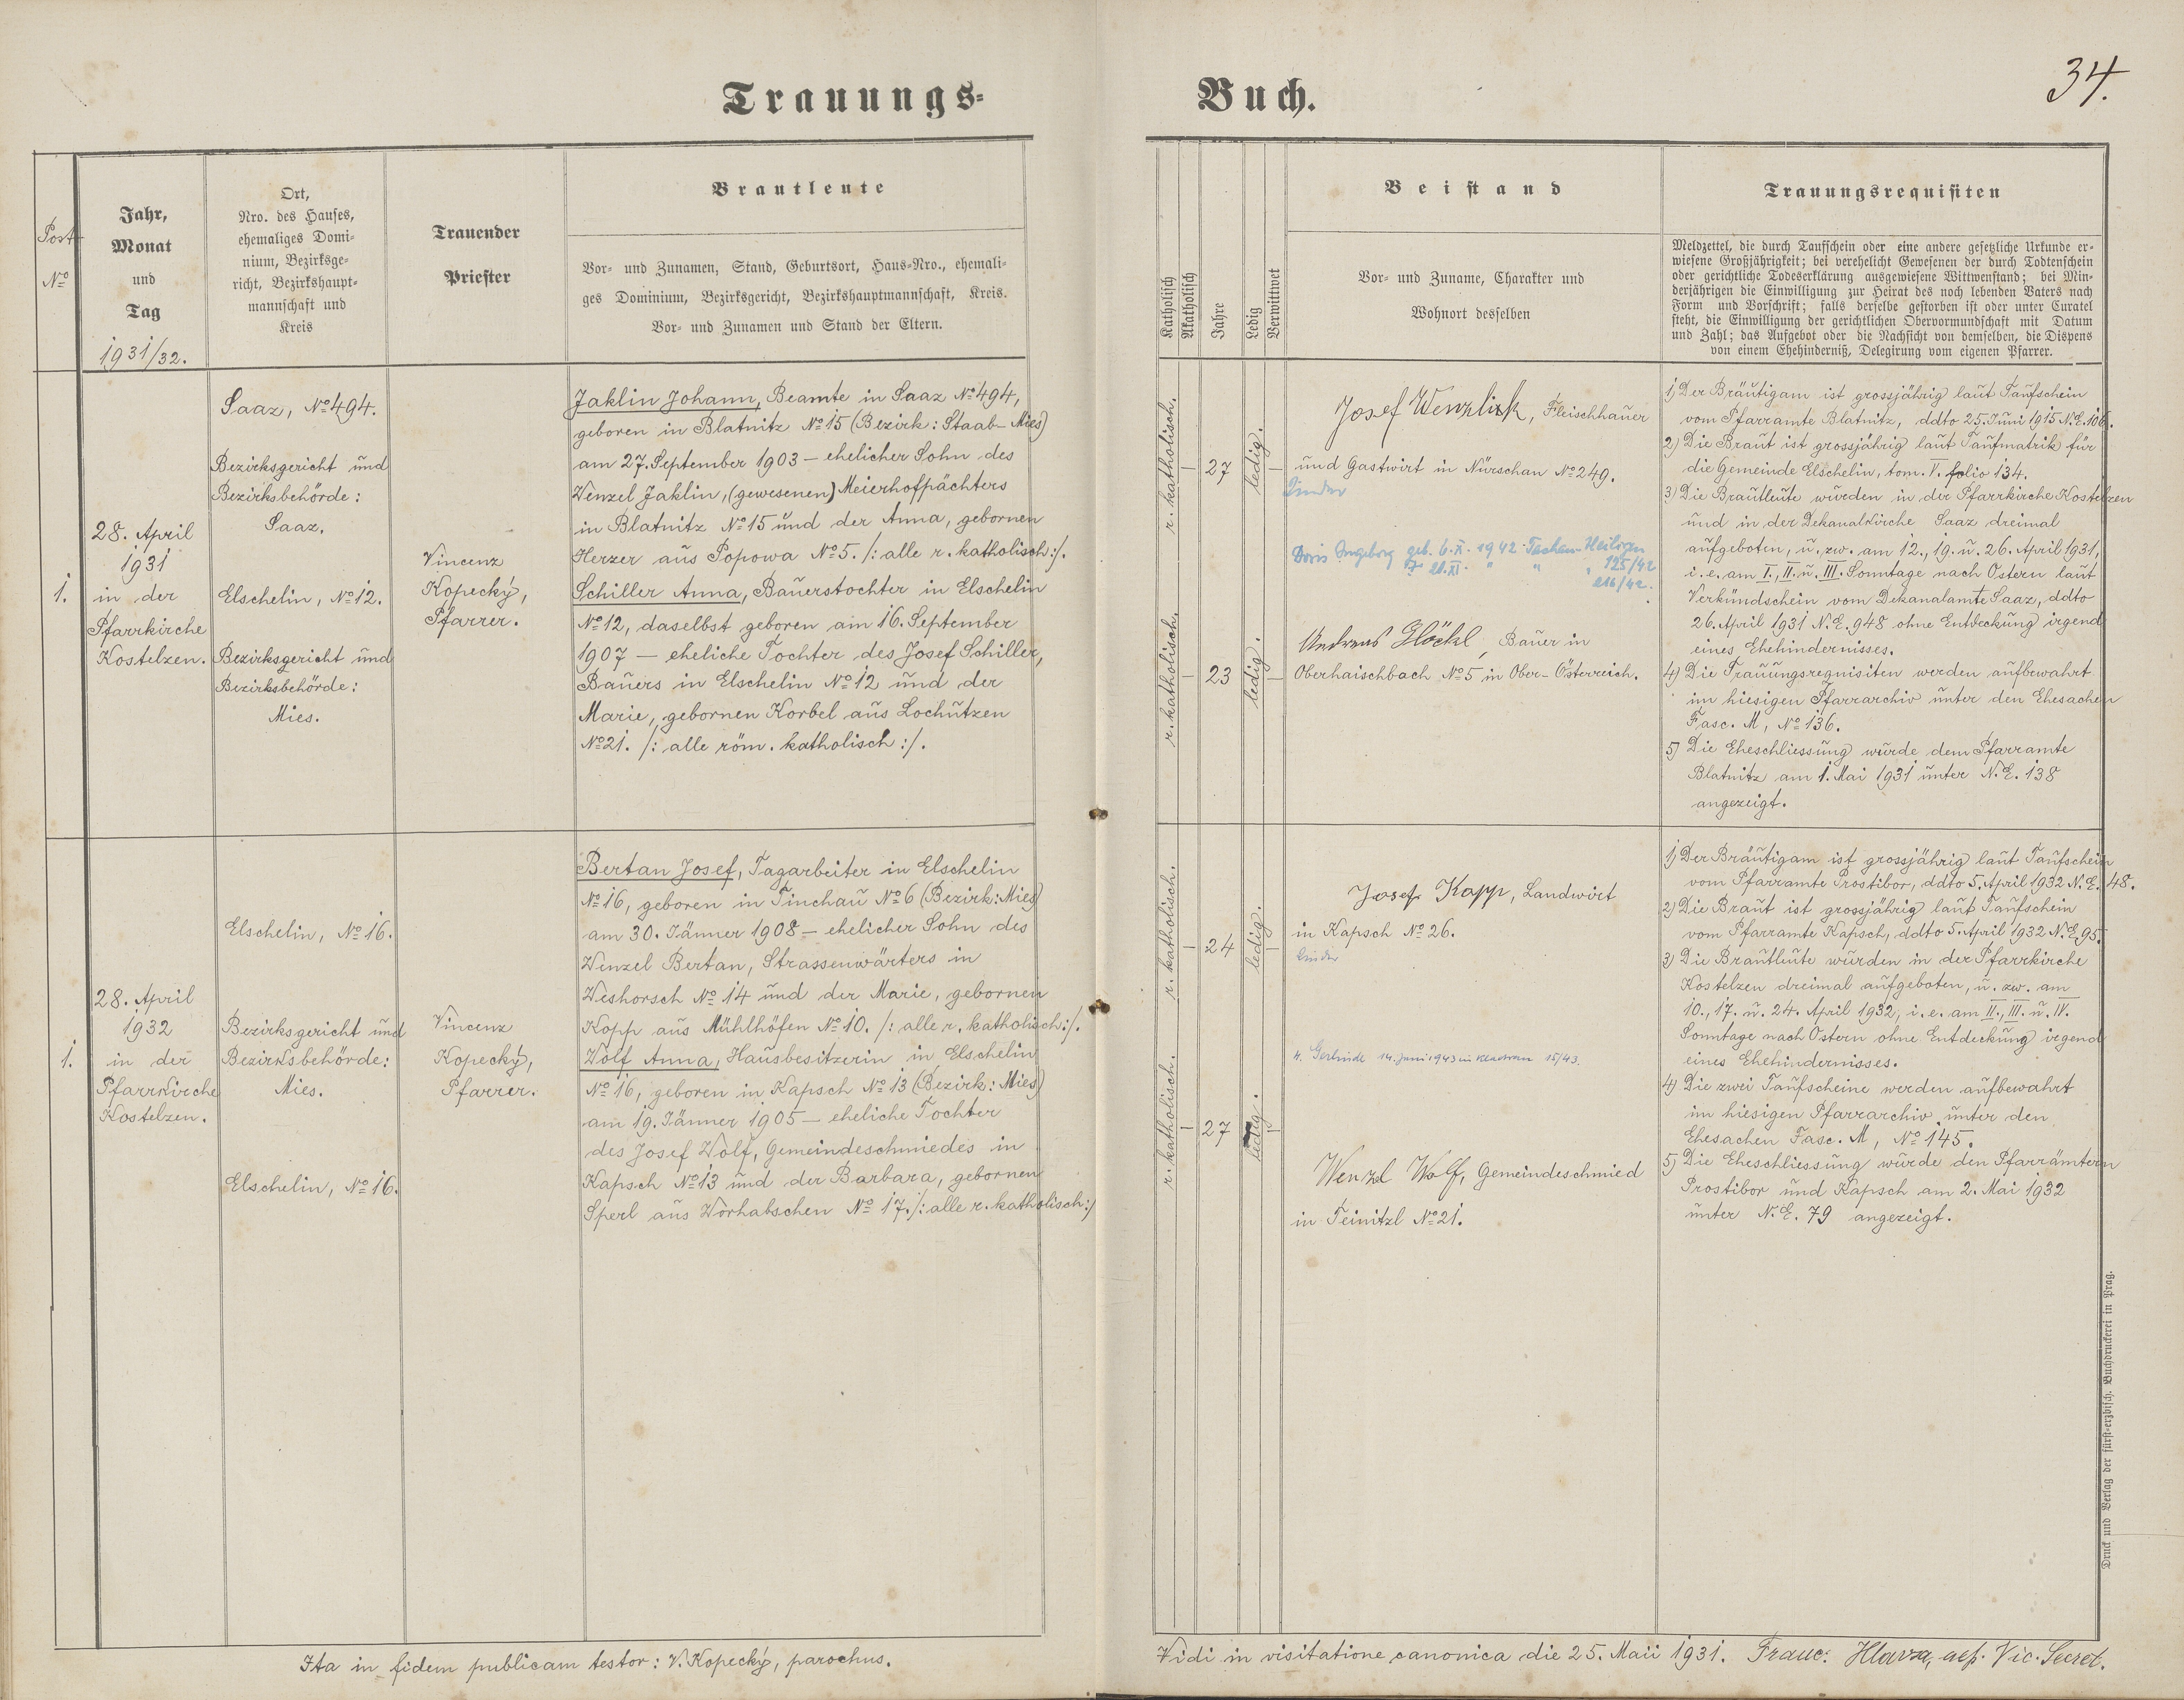 Trauungs=
Buch.
34.
Post
No
Jahr,
Monat
und
Tag
1931/32.
Ort,
Nro. des Hauses,
ehemaliges Domi=
nium, Bezirksge=
richt, Bezirkshaupt=
mannschaft und
Kreis
Trauender
Priester
Brautleute
Vor- und Zunamen, Stand, Geburtsort, Haus-Nro., ehemali=
ges Dominium, Bezirksgericht, Bezirkshauptmannschaft, Kreis.
Vor- und Zunamen und Stand der Eltern.
Katholisch
Akatholisch
Jahre
Ledig
Verwittwet
Beistand
Vor- und Zuname, Charakter und
Wohnort desselben
Trauungsrequisiten
Meldzettel, die durch Taufschein oder eine andere gesetzliche Urkunde er=
wiesene Großjährigkeit; bei verehelicht Gewesenen der durch Todtenschein
oder gerichtliche Todeserklärung ausgewiesene Wittwenstand; bei Min=
derjährigen die Einwilligung zur Heirat des noch lebenden Vaters nach
Form und Vorschrift; falls derselbe gestorben ist oder unter Curatel
steht, die Einwilligung der gerichtlichen Obervormundschaft mit Datum
und Zahl; das Aufgebot oder die Nachsicht von demselben, die Dispens
von einem Ehehinderniß, Delegirung vom eigenen Pfarrer.
1.
28. April
1931
in der
Pfarrkirche
Kostelzen.
Saaz, No 494.
Bezirksgericht und
Bezirksbehörde:
Saaz.
Elschelin, No 12.
Bezirksgericht und
Bezirksbehörde:
Mies.
Vincenz
Kopecký,
Pfarrer.
Jaklin Johann, Beamte in Saaz No 494,
geboren in Blatnitz No 15 (Bezirk: Staab-Mies)
am 27. September 1903 – ehelicher Sohn des
Wenzel Jaklin, (gewesenen) Meierhofpächters
in Blatnitz No 15 und der Anna, gebornen
Herzer aus Popowa No 5. /: alle r. katholisch :/.
Schiller Anna, Bauerstochter in Elschelin
No 12, daselbst geboren am 16. September
1907 – eheliche Tochter des Josef Schiller,
Bauers in Elschelin No 12 und der
Marie, gebornen Korbel aus Lochutzen
No 21. /: alle röm. katholisch :/.
r. katholisch.
–
27
ledig.
–
r. katholisch.
–
23
ledig.
–
Josef Wenzlick, Fleischhauer
und Gastwirt in Nürschan No 249.
Kinder
Doris Ingeborg geb. 6.X. 1942 Tachau-Heiligen
125/42
216/42.
Andreas Glöckl, Bauer in
Oberhaischbach No 5 in Ober-Österreich.
1) Der Bräutigam ist grossjährig laut Taufschein
vom Pfarramte Blatnitz, ddto 25. Juni 1915 N.E. 106.
2) Die Braut ist grossjährig laut Taufmatrik für
die Gemeinde Elschelin, tom. V. folio 134.
3) Die Brautleute wurden in der Pfarrkirche Kostelzen
und in der Dekanalkirche Saaz dreimal
aufgeboten, u. zw. am 12., 19. u. 26. April 1931,
i. e. am I., II. u. III. Sonntage nach Ostern laut
Verkündschein vom Dekanalamte Saaz, ddto
26. April 1931 N.E. 948 ohne Entdeckung irgend
eines Ehehindernisses.
4) Die Trauungsrequisiten werden aufbewahrt
im hiesigen Pfarrarchiv unter den Ehesachen
Fasc. M, No 136.
5) Die Eheschliessung wurde dem Pfarramte
Blatnitz am 1. Mai 1931 unter N.E. 138
angezeigt.
1.
28. April
1932
in der
Pfarrkirche
Kostelzen.
Elschelin, No 16.
Bezirksgericht und
Bezirksbehörde:
Mies.
Elschelin, No 16.
Vincenz
Kopecký,
Pfarrer.
Bertan Josef, Tagarbeiter in Elschelin
No 16, geboren in Tinchau No 6 (Bezirk: Mies)
am 30. Jänner 1908 – ehelicher Sohn des
Wenzel Bertan, Strassenwärters in
Weshorsch No 14 und der Marie, gebornen
Kopp aus Mühlhöfen No 10. /: alle r. katholisch :/.
Wolf Anna, Hausbesitzerin in Elschelin
No 16, geboren in Kapsch No 13 (Bezirk: Mies)
am 19. Jänner 1905 – eheliche Tochter
des Josef Wolf, Gemeindeschmiedes in
Kapsch No 13 und der Barbara, gebornen
Sperl aus Worhabschen No 17. /: alle r. katholisch :/
r. katholisch.
–
24
ledig.
–
r. katholisch.
–
27
ledig.
–
Josef Kapp, Landwirt
in Kapsch No 26.
Kinder
4. Gerlinde 14. Juni 1943 in Kladrau 15/43.
Wenzl Wolf, Gemeindeschmied
in Teinitzl No 21.
1) Der Bräutigam ist grossjährig laut Taufschein
vom Pfarramte Prostibor, ddto 5. April 1932 N.E. 48.
2) Die Braut ist grossjährig laut Taufschein
vom Pfarramte Kapsch, ddto 5. April 1932 N.E. 95.
3) Die Brautleute wurden in der Pfarrkirche
Kostelzen dreimal aufgeboten, u. zw. am
10., 17. u. 24. April 1932, i. e. am II., III. u. IV.
Sonntage nach Ostern ohne Entdeckung irgend
eines Ehehindernisses.
4) Die zwei Taufscheine werden aufbewahrt
im hiesigen Pfarrarchiv unter den
Ehesachen Fasc. M, No 145.
5) Die Eheschliessung wurde den Pfarrämtern
Prostibor und Kapsch am 2. Mai 1932
unter N.E. 79 angezeigt.
Druck und Verlag der fürst-erzbisch. Buchdruckerei in Prag.
Ita in fidem publicam testor: V. Kopecký, parochus.
Vidi in visitatione canonica die 25. Maii 1931. Franc. Hlavza, aep. Vic. Secret.